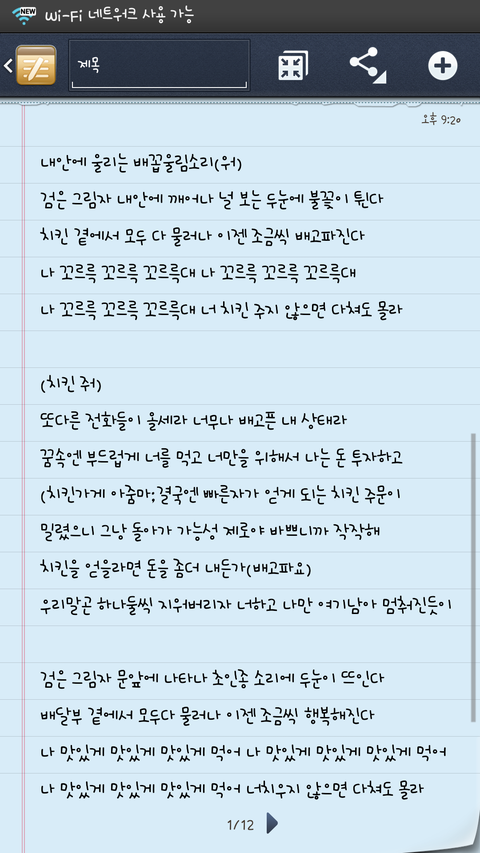 NEW
Wi-Fi 네트워크 사용 가능
제목
오후 9:20
내안에 울리는 배꼽울림소리(워)
검은 그림자 내안에 깨어나 널 보는 두눈에 불꽃이 튄다
치킨 곁에서 모두 다 물러나 이젠 조금씩 배고파진다
나 꼬르륵 꼬르륵 꼬르륵대 나 꼬르륵 꼬르륵 꼬르륵대
나 꼬르륵 꼬르륵 꼬르륵대 너 치킨 주지 않으면 다쳐도 몰라
(치킨 줘)
또다른 전화들이 올세라 너무나 배고픈 내 상태라
꿈속엔 부드럽게 너를 먹고 너만을 위해서 나는 돈 투자하고
(치킨가게 아줌마;결국엔 빠른자가 얻게 되는 치킨 주문이
밀렸으니 그냥 돌아가 가능성 제로야 바쁘니까 작작해
치킨을 얻을라면 돈을 좀더 내든가(배고파요)
우리말곤 하나둘씩 지워버리자 너하고 나만 여기남아 멈춰진듯이
검은 그림자 문앞에 나타나 초인종 소리에 두눈이 뜨인다
배달부 곁에서 모두다 물러나 이젠 조금씩 행복해진다
나 맛있게 맛있게 맛있게 먹어 나 맛있게 맛있게 맛있게 먹어
나 맛있게 맛있게 맛있게 먹어 너치우지 않으면 다쳐도 몰라
1/12